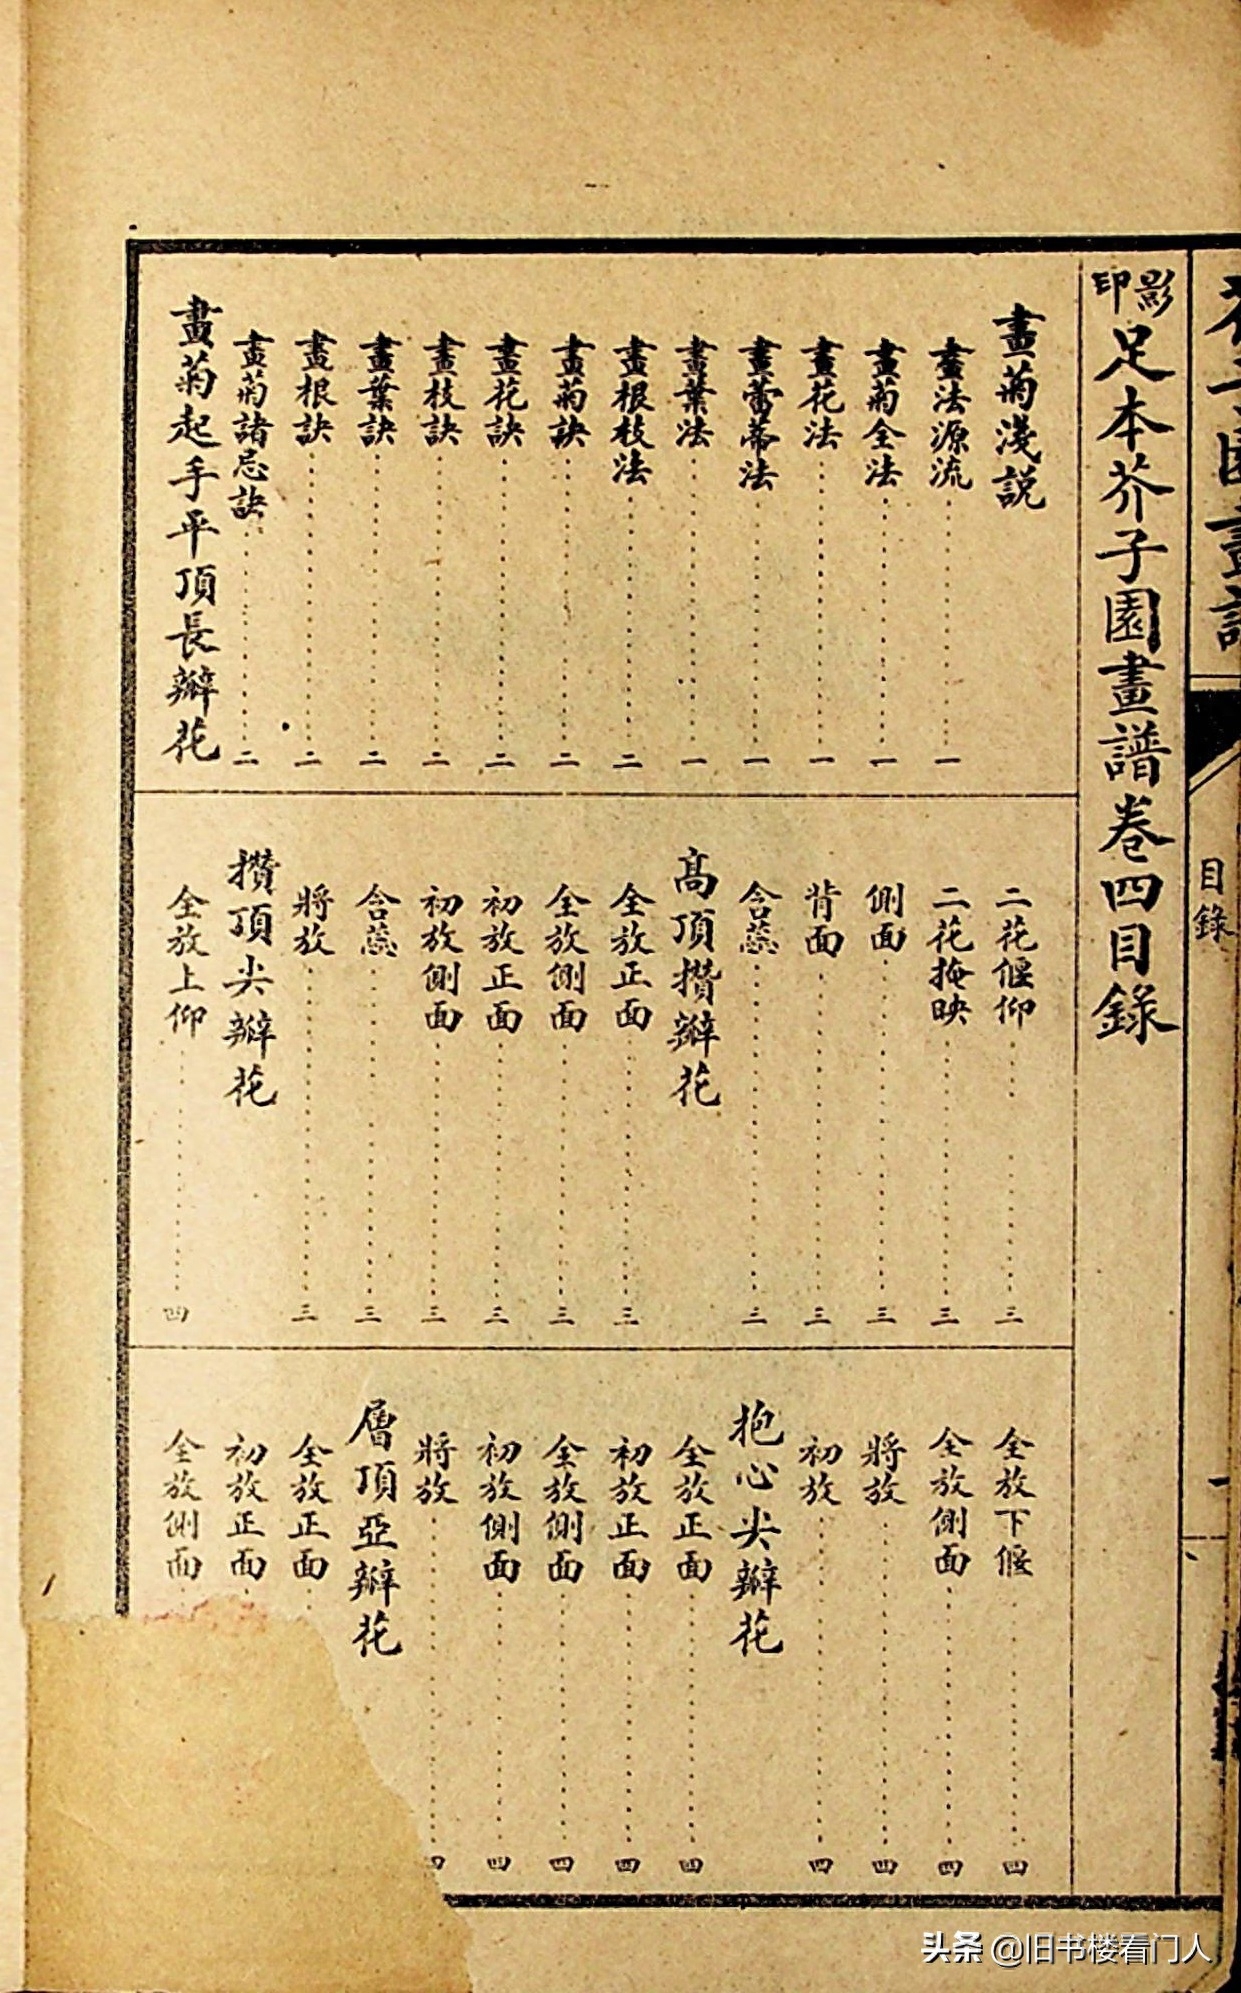 影印足本芥子園畫譜卷四目錄
畫菊淺說
畫法源流 一
畫菊全法 一
畫花法 一
畫蕾蒂法 一
畫葉法 一
畫根枝法 二
畫菊訣 二
畫花訣 二
畫枝訣 二
畫葉訣 二
畫根訣 二
畫菊諸忌訣 二
畫菊起手平頂長瓣花
二花偃仰 三
二花掩映 三
側面 三
背面 三
含蕊 三
高頂攢瓣花
全放正面 三
全放側面 三
初放正面 三
初放側面 三
含蕊 三
將放 三
攢頂尖瓣花
全放上仰 四
全放下偃 四
全放側面 四
將放 四
初放 四
抱心尖瓣花
全放正面 四
初放正面 四
全放側面 四
初放側面 四
將放
層頂亞瓣花
全放正面
初放正面
全放側面
目錄
头条 @旧书楼看门人